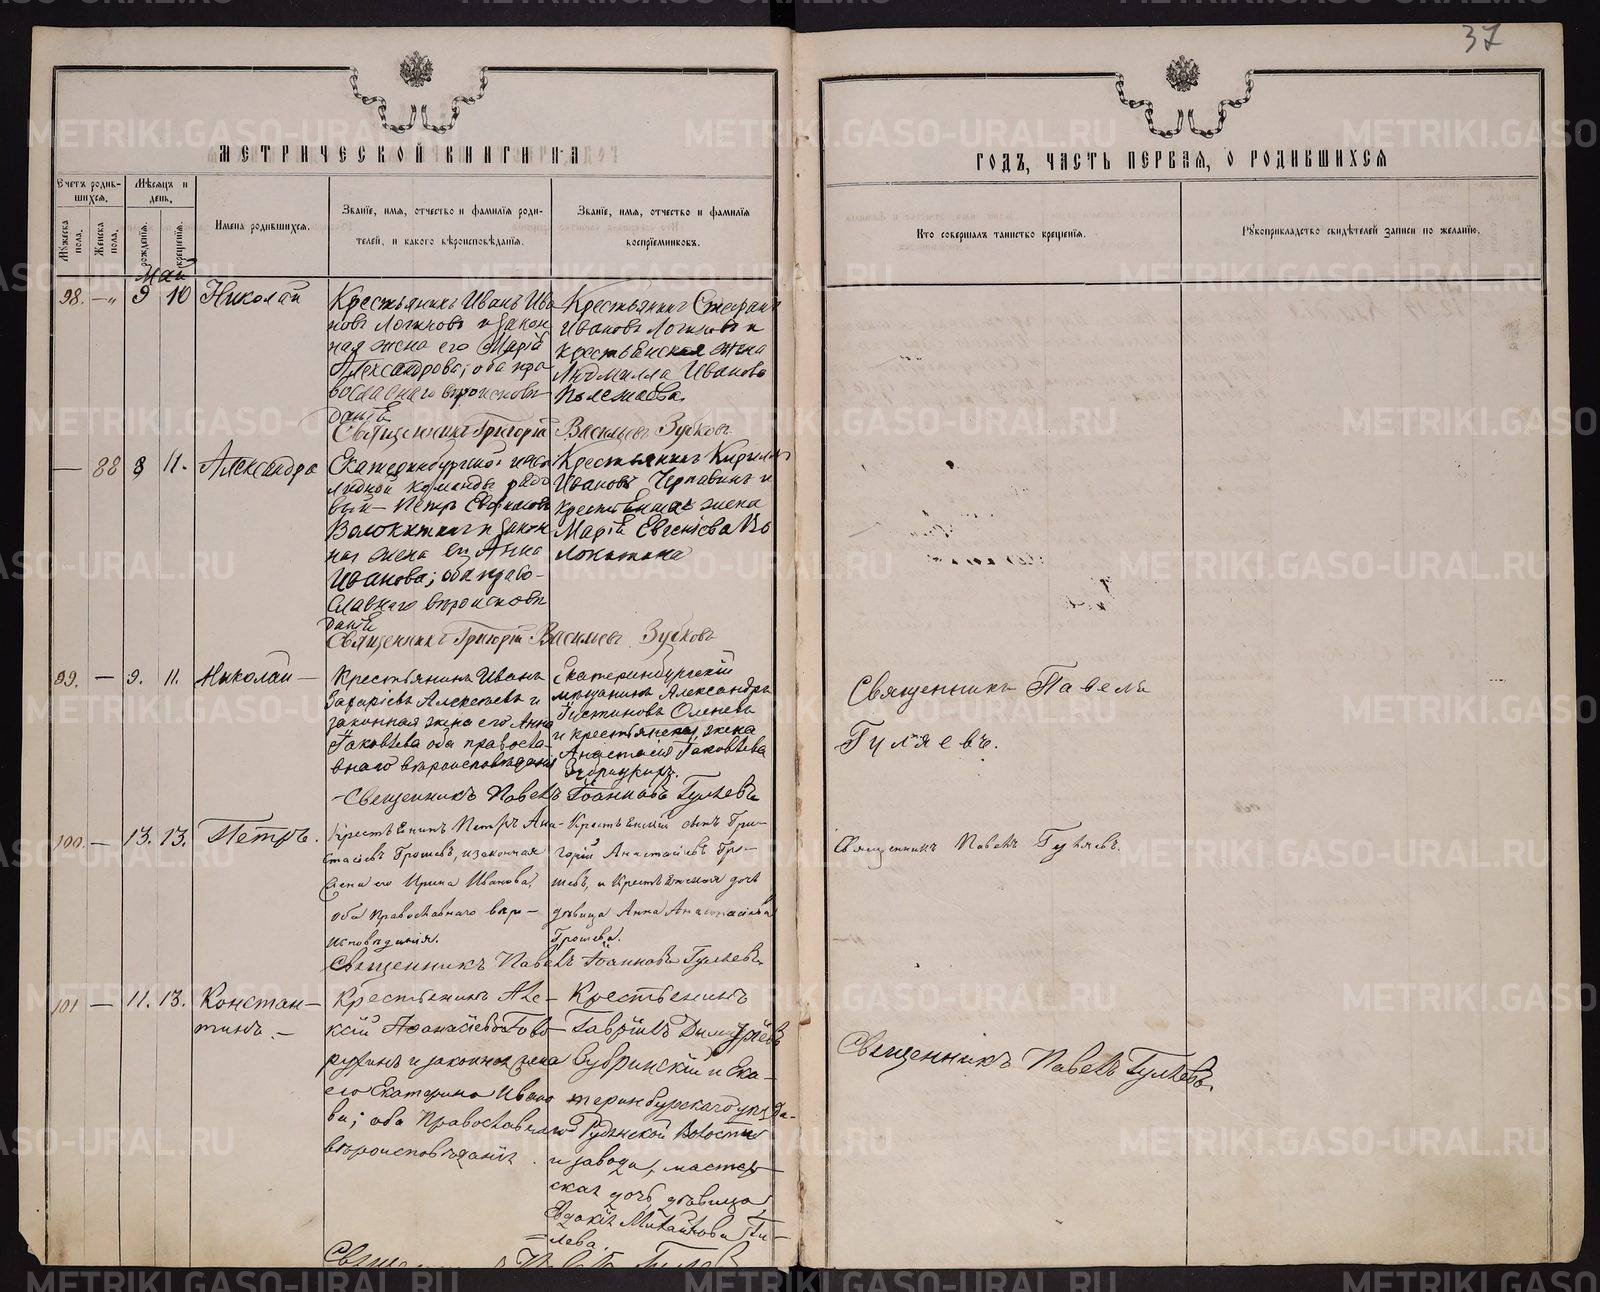 37
МЕТРИЧЕСКОЙ КНИГИ НА
ГОДЪ, ЧАСТЬ ПЕРВАЯ, О РОДИВШИХСЯ
Счетъ родив-
шихся.
Мѣсяцъ и
день.
Мужеска
пола.
Женска
пола.
рожденія.
крещенія.
Имена родившихся.
Званіе, имя, отчество и фамилія роди-
телей, и какого вѣроисповѣданія.
Званіе, имя, отчество и фамилія
воспріемниковъ.
Кто совершалъ таинство крещенія.
Рукоприкладство свидѣтелей записи по желанію.
Май
98. — 9 10 Николай
Крестьянинъ Иванъ Ива
новъ Логиновъ и закон
ная жена его Марія
Александрова; оба пра
вославнаго вѣроисповѣ
данія
Крестьянинъ Стефанъ
Ивановъ Логиновъ и
крестьянская жена
Людмилла Иванова
Священникъ Григорій Васильевъ Зубковъ
— 88 8 11. Александра
Екатеринбургской
команды рядо
вый Петръ
Волокитинъ и закон
ная жена его Анна
Иванова; оба право-
славнаго вѣроисповѣ
данія
Крестьянинъ Кириллъ
Ивановъ и
крестьянская жена
Марія Евгеніева Во
локитина
Священникъ Григорій Васильевъ Зубковъ
99. — 9. 11. Николай —
Крестьянинъ Иванъ
Захаріевъ Алексѣевъ и
законная жена его Анна
Іаковлева оба правосла-
внаго вѣроисповѣданія
Екатеринбургскій
мѣщанинъ Александръ
Іустиновъ Оленевъ
и крестьянская жена
Анастасія Іаковлева
Священникъ Павелъ Іоанновъ Гуляевъ
Священникъ Павелъ
Гуляевъ.
100. — 13. 13. Петръ.
Крестьянинъ Петръ Ана-
стасіевъ Грошевъ, и законная
жена его Ирина Иванова,
оба православнаго вѣро-
исповѣданія.
Крестьянскій сынъ Гри-
горій Анастасіевъ Гро-
шевъ, и крестьянская дочь
дѣвица Анна Анастасіева
Грошева.
Священникъ Павелъ Іоанновъ Гуляевъ
Священникъ Павелъ Гуляевъ.
101 — 11. 13. Констан-
тинъ. —
Крестьянинъ Але-
ксій Аѳанасіевъ Гово-
рухинъ и законная жена
его Екатерина Ивано
ва; оба православнаго
вѣроисповѣданія.
Крестьянинъ
Гавріилъ Димитріевъ
и Ека-
теринбургскаго уѣзда
волости
и завода, мастер-
ская дочь, дѣвица,
Евдокія Михайлова
Священникъ Павелъ Гуляевъ.
METRIKI.GASO-URAL.RU